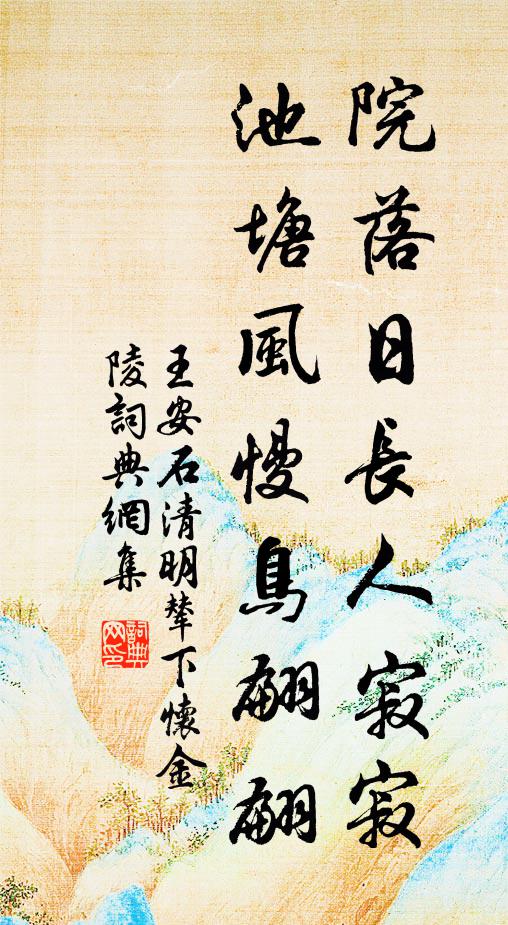 院落日長人寂寂
池塘風慢鳥翩翩
王安石清明輦下懷金
陵詞典網集
詞典
网印